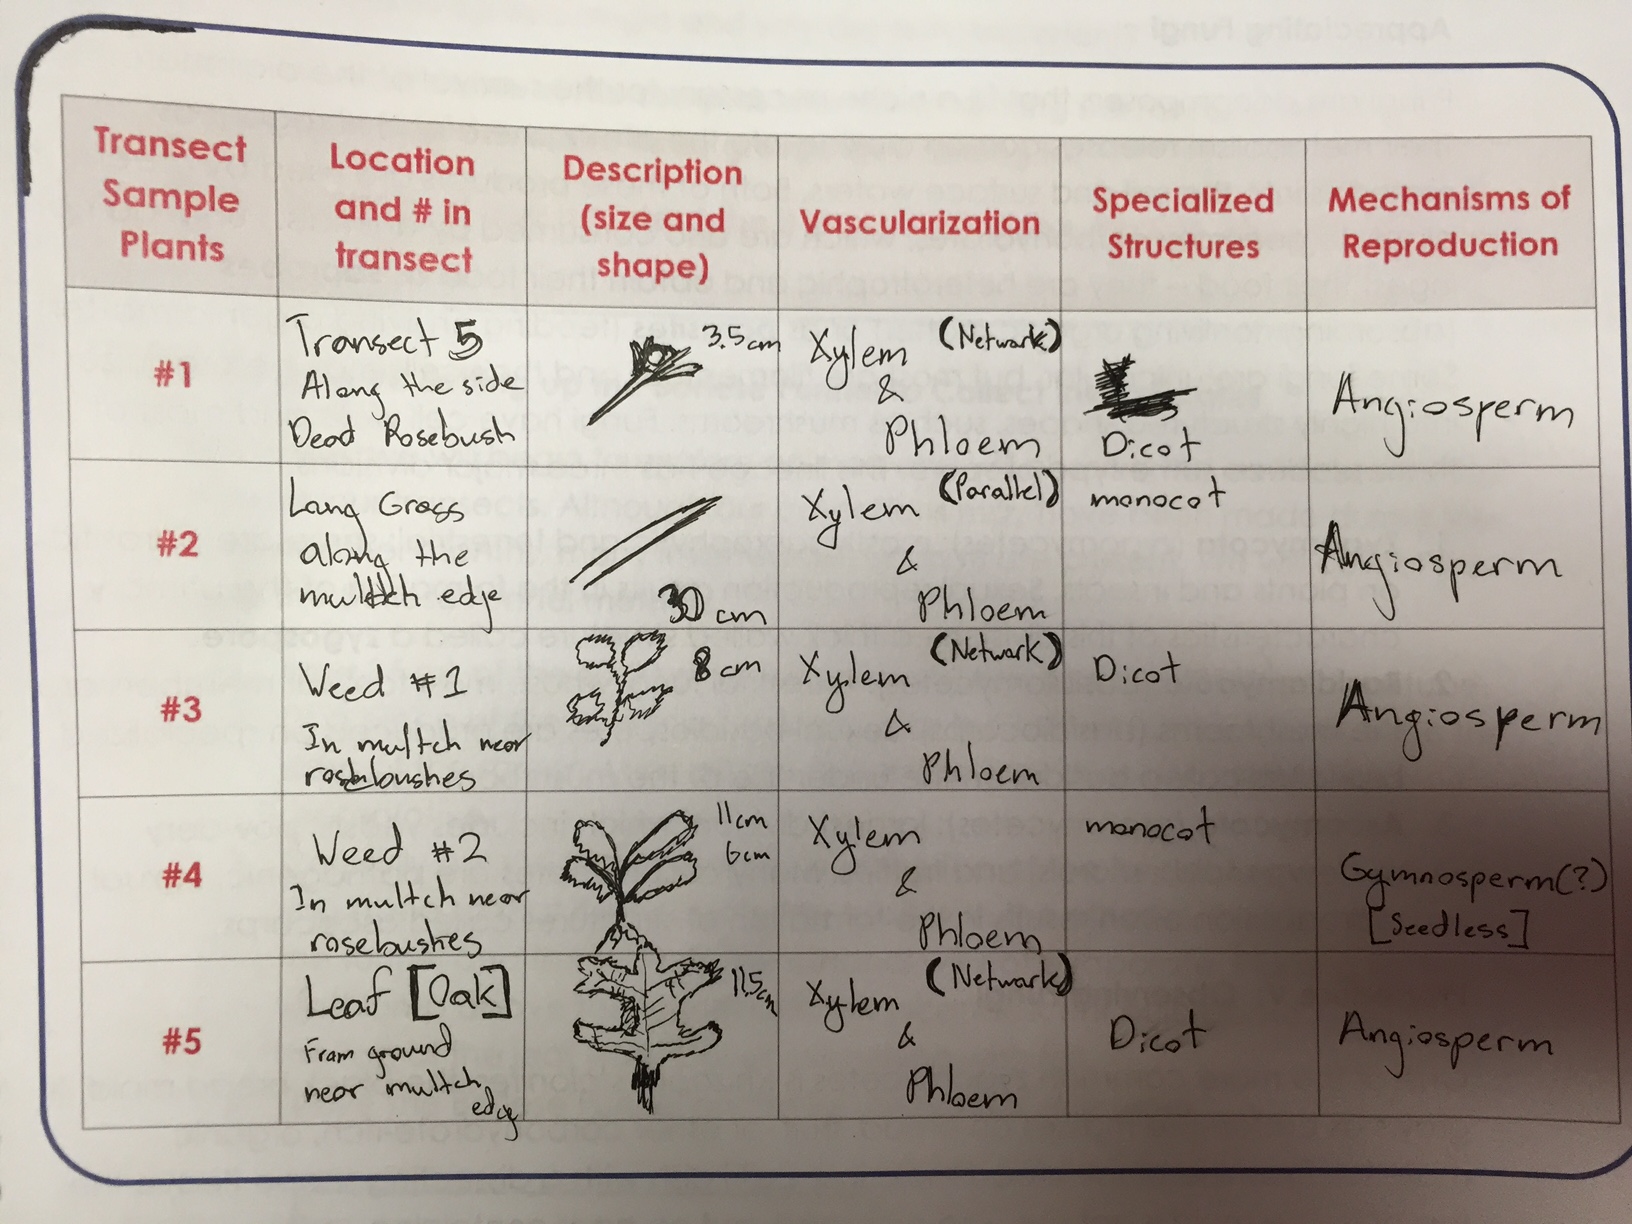 Transect
Sample
Plants
Location
and # in
transect
Description
(size and
shape)
Vascularization
Specialized
Structures
Mechanisms of
Reproduction
#1
Transect 5
Along the side
Dead Rosebush
3.5cm
Xylem (Network)
&
Phloem
Dicot
Angiosperm
#2
Long Grass
along the
multch edge
30 cm
Xylem (Parallel)
&
Phloem
monocot
Angiosperm
#3
Weed #1
In multch near
rosebushes
8 cm
Xylem (Network)
&
Phloem
Dicot
Angiosperm
#4
Weed #2
In multch near
rosebushes
11cm
6cm
Xylem
&
Phloem
monocot
Gymnosperm(?)
[Seedless]
#5
Leaf [Oak]
From ground
near multch
edge
11.5cm
Xylem (Network)
&
Phloem
Dicot
Angiosperm